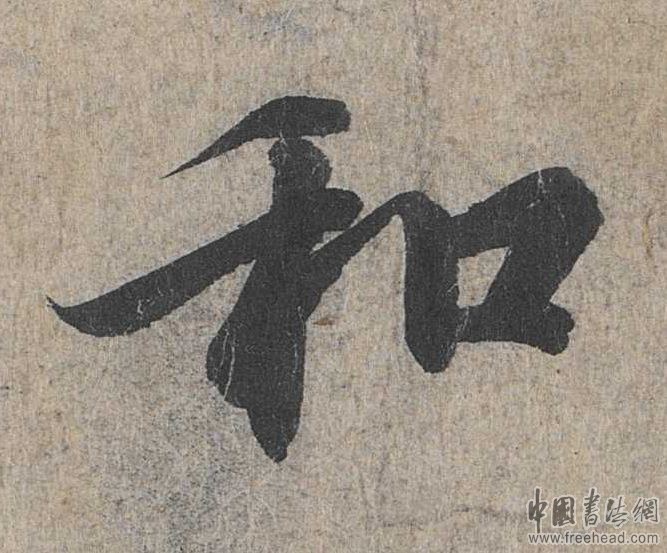 和
中国书法網
www.freehead.com